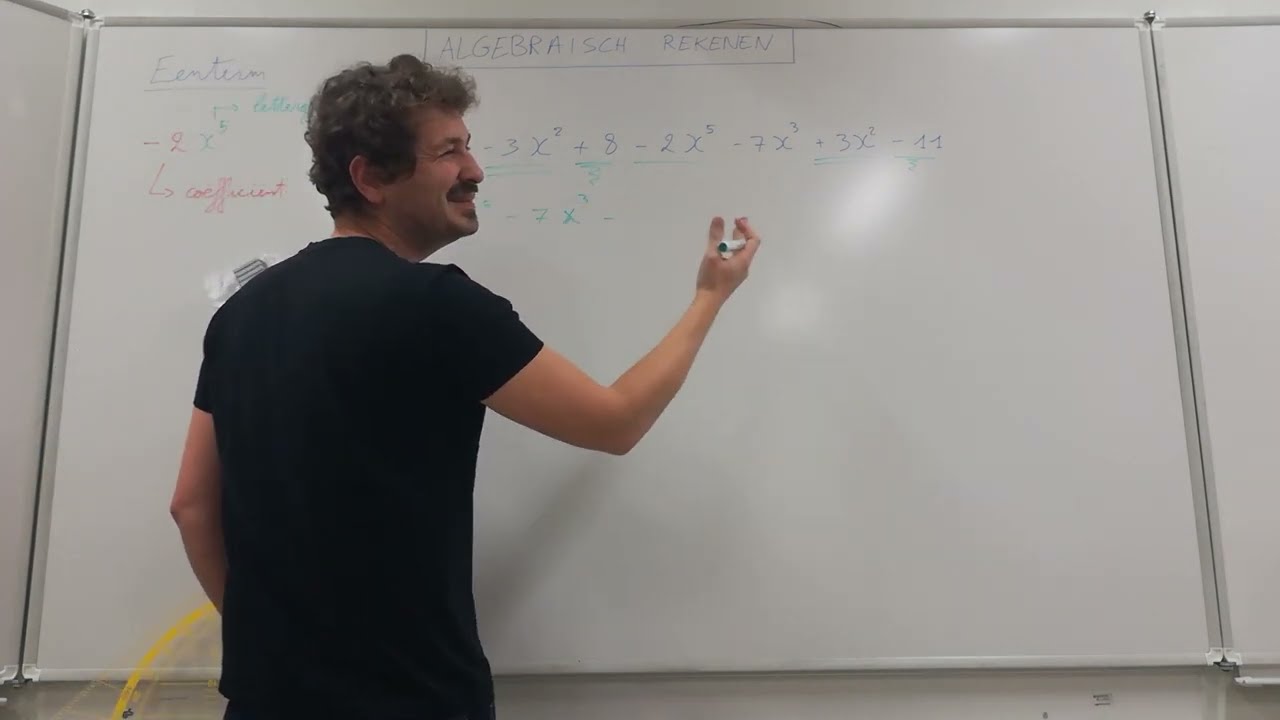 ALGEBRAISCH REKENEN
Eenterm
- 2 x⁵
coefficient
- 3x² + 8 - 2x⁵ - 7x³ + 3x² - 11
- 7x³ -